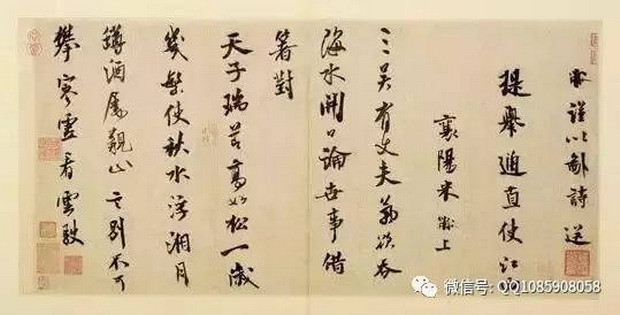 黻謹以鄙詩送
提舉通直使江西
襄陽米黻上
三吳有丈夫氣欲吞
海水開口論世事借
箸對
天子瑞節高如松一歲
幾繁使秋水浮湘月
罇酒屬山言別不可
攀寒雲看雲駛
微信号: QQ1085908058